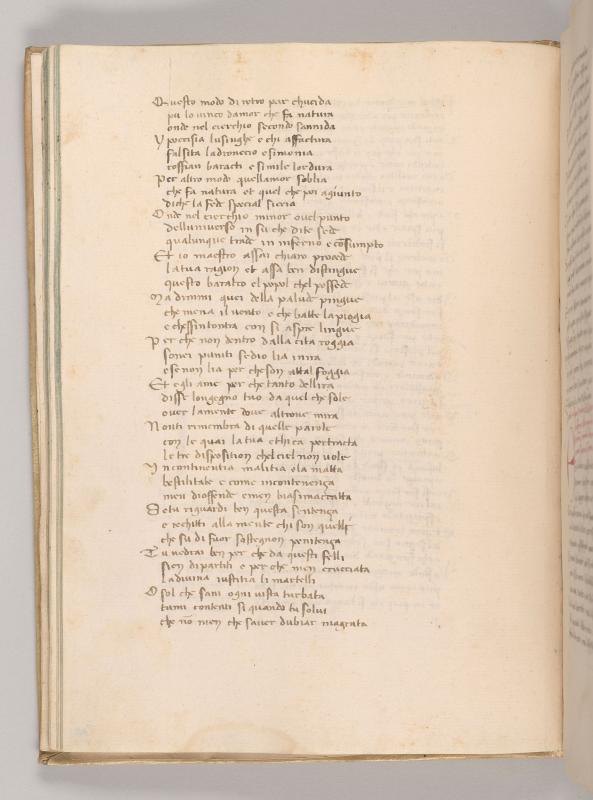 Questo modo di retro par chucida
pu lo vinco damor che fa natura
onde nel cierchio secondo sannida
Ypocrisia lusinghe e chi affactura
falsita ladroneccio e simonia
roffian baracti e simile lordura
Per altro modo quellamor soblia
che fa natura et quel che poi agiunto
di che la fede spetial si cria
Onde nel cierchio minor ovel punto
delluniverso in su che dite sede
qualunque trade in inferno e cōsumpto
Et io maestro assai chiaro procede
la tua ragion et assa ben distingue
questo baratro el popol chel possede
Ma dimmi quei della palude pingue
che mena il vento e che batte la piogia
e chessintontra con si aspre lingue
Per che non dentro dalla cita roggia
sonei puniti se dio lia inira
e se non lia per che son attal foggia
Et egli ame per che tanto dellira
disse longegno tuo da quel che sole
over lamente dove altrove mira
Nonti rimembra di quelle parole
con le quai latua ethica pertracta
le tre disposition chel ciel non vole
Yncontinentia malitia ela matta
bestilitate e come incontenença
men dioffende emen biasimaccatta
Se tu riguardi ben questa sentença
e rechitti alla mente chi son quelli
che su di fuor sostegnon penitença
Tu vedrai ben per che da questi felli
sien dipartiti e per che men crucciata
la divina iustitia li martelli
O sol che sani ogni vista turbata
tumi contenti si quando tu solvi
che nō men che saver dubiar magrata